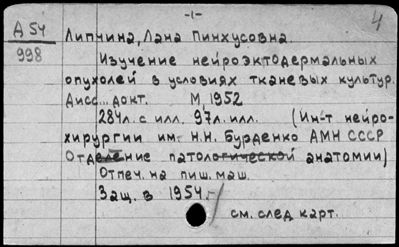 -1-
4
А 54
998
Липчина, Лана Пинхусовна.
Изучение нейроэктодермальных
опухолей в условиях тканевых культур.
Дисс... докт. М, 1952
284л. с илл. 97л. илл. (Ин-т нейро-
хирургии им. Н.Н. Бурденко АМН СССР
Отделение патологической анатомии)
Отпеч. на пиш. маш.
Защ. в 1954 г.
см. след карт.